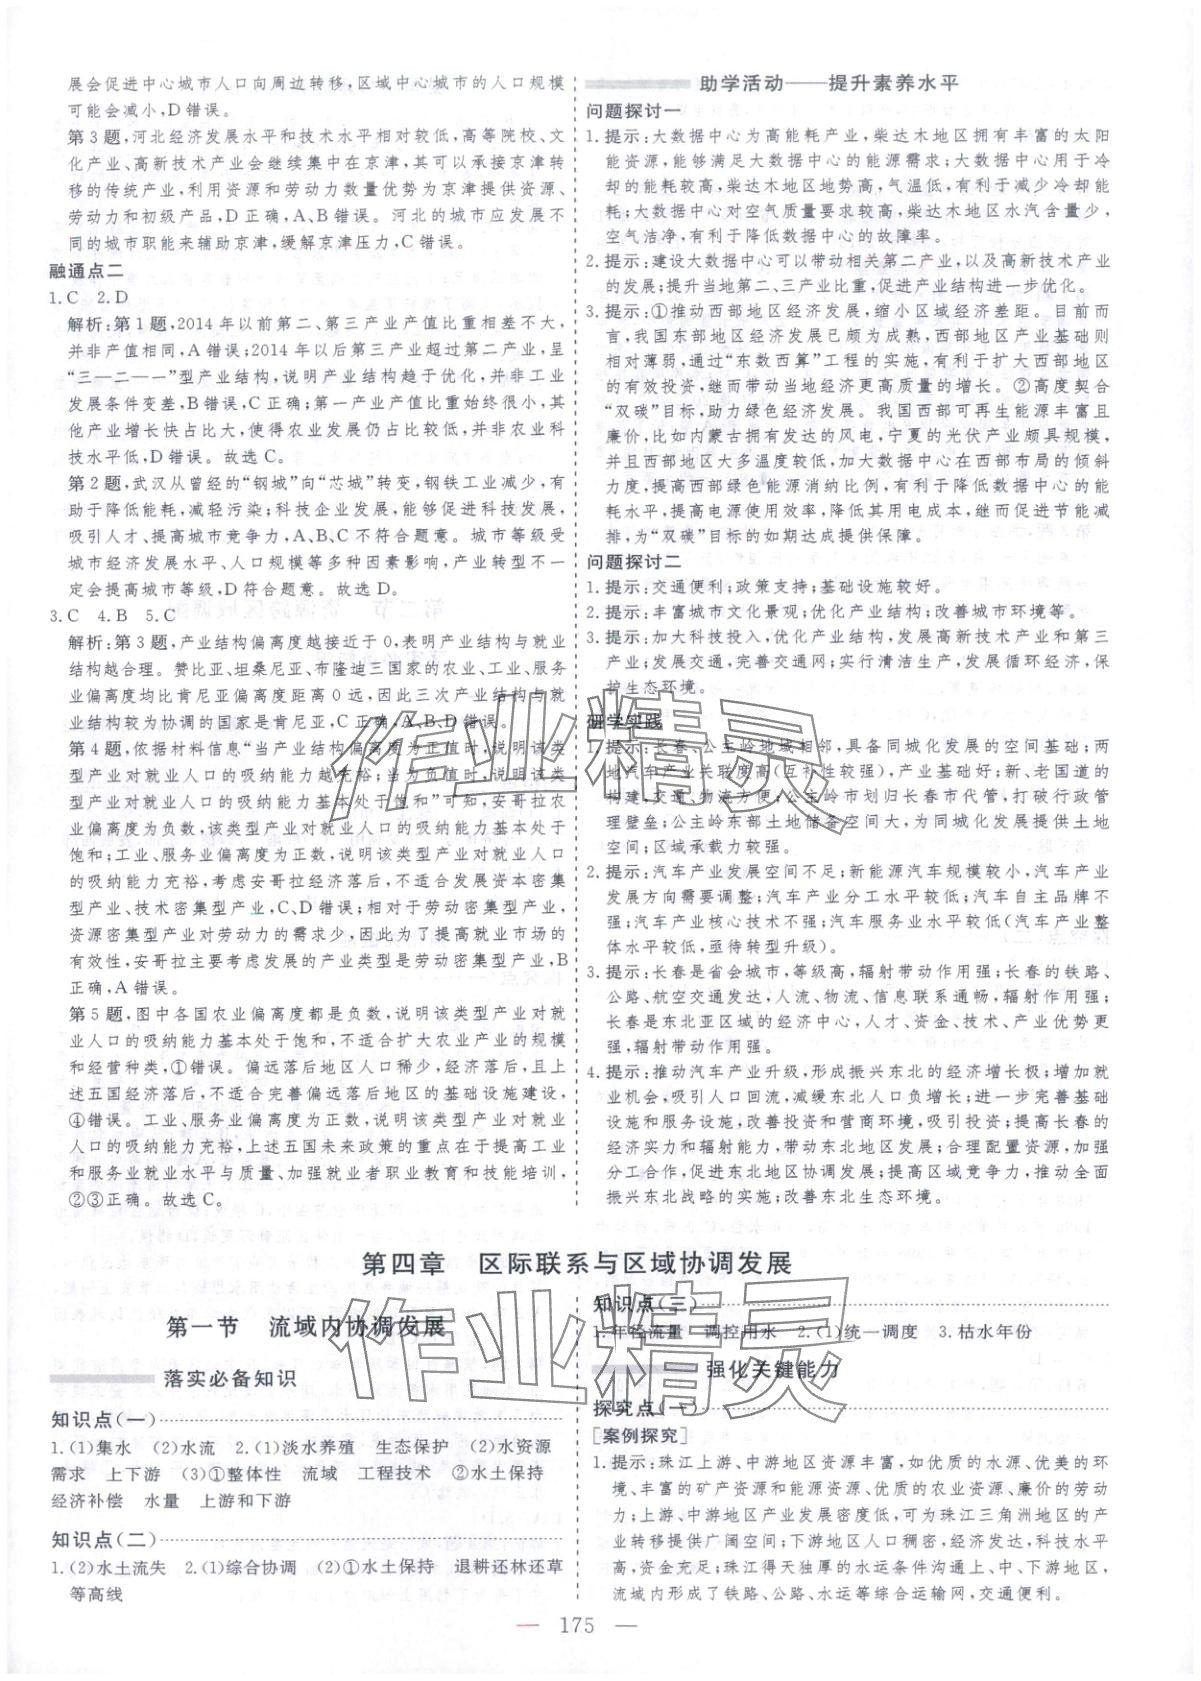 展会促进中心城市人口向周边转移,区域中心城市的人口规模
可能会减小,D错误。
第3题,河北经济发展水平和技术水平相对较低,高等院校、文
化产业、高新技术产业会继续集中在京津,其可以承接京津转
移的传统产业,利用资源和劳动力数量优势为京津提供资源、
劳动力和初级产品,D正确,A、B错误。河北的城市应发展不
同的城市职能来辅助京津,缓解京津压力,C错误。
融通点二
1.C 2.D
解析:第1题,2014年以前第二、第三产业产值比重相差不大,
并非产值相同,A错误;2014年以后第三产业超过第二产业,呈
“三—二—一”型产业结构,说明产业结构趋于优化,并非工业
发展条件变差,B错误,C正确;第一产业产值比重始终很小,其
他产业增长快占比大,使得农业发展仍占比较低,并非农业科
技水平低,D错误。故选C。
第2题,武汉从曾经的“钢城”向“芯城”转变,钢铁工业减少,有
助于降低能耗,减轻污染;科技企业发展,能够促进科技发展,
吸引人才、提高城市竞争力,A、B、C不符合题意。城市等级受
城市经济发展水平、人口规模等多种因素影响,产业转型不一
定会提高城市等级,D符合题意。故选D。
3.C 4.B 5.C
解析:第3题,产业结构偏离度越接近于0,表明产业结构与就业
结构越合理。赞比亚、坦桑尼亚、布隆迪三国家的农业、工业、服务
业偏离度均比肯尼亚偏离度距离0远,因此三次产业结构与就
业结构较为协调的国家是肯尼亚,C正确,A、B、D错误。
第4题,依据材料信息“当产业结构偏离度为正值时,说明该类
型产业对就业人口的吸纳能力越充裕;当为负值时,说明该类
型产业对就业人口的吸纳能力基本处于饱和”可知,安哥拉农
业偏离度为负数,该类型产业对就业人口的吸纳能力基本处于
饱和;工业、服务业偏离度为正数,说明该类型产业对就业人口
的吸纳能力充裕,考虑安哥拉经济落后,不适合发展资本密集
型产业、技术密集型产业,C、D错误;相对于劳动密集型产业,
资源密集型产业对劳动力的需求少,因此为了提高就业市场的
有效性,安哥拉主要考虑发展的产业类型是劳动密集型产业,B
正确,A错误。
第5题,图中各国农业偏离度都是负数,说明该类型产业对就
业人口的吸纳能力基本处于饱和,不适合扩大农业产业的规模
和经营种类,①错误。偏远落后地区人口稀少,经济落后,且上
述五国经济落后,不适合完善偏远落后地区的基础设施建设,
④错误。工业、服务业偏离度为正数,说明该类型产业对就业
人口的吸纳能力充裕,上述五国未来政策的重点在于提高工业
和服务业就业水平与质量、加强就业者职业教育和技能培训,
②③正确。故选C。
助学活动——提升素养水平
问题探讨一
1.提示:大数据中心为高能耗产业,柴达木地区拥有丰富的太阳
能资源,能够满足大数据中心的能源需求;大数据中心用于冷
却的能耗较高,柴达木地区地势高,气温低,有利于减少冷却能
耗;大数据中心对空气质量要求较高,柴达木地区水汽含量少,
空气洁净,有利于降低数据中心的故障率。
2.提示:建设大数据中心可以带动相关第二产业,以及高新技术产业
的发展;提升当地第二、三产业比重,促进产业结构进一步优化。
3.提示:①推动西部地区经济发展,缩小区域经济差距。目前而
言,我国东部地区经济发展已颇为成熟,西部地区产业基础则
相对薄弱,通过“东数西算”工程的实施,有利于扩大西部地区
的有效投资,继而带动当地经济更高质量的增长。②高度契合
“双碳”目标,助力绿色经济发展。我国西部可再生能源丰富且
廉价,比如内蒙古拥有发达的风电,宁夏的光伏产业颇具规模,
并且西部地区大多温度较低,加大数据中心在西部布局的倾斜
力度,提高西部绿色能源消纳比例,有利于降低数据中心的能
耗水平,提高电源使用效率,降低其用电成本,继而促进节能减
排,为“双碳”目标的如期达成提供保障。
问题探讨二
1.提示:交通便利;政策支持;基础设施较好。
2.提示:丰富城市文化景观;优化产业结构;改善城市环境等。
3.提示:加大科技投入,优化产业结构,发展高新技术产业和第三
产业;发展交通,完善交通网;实行清洁生产,发展循环经济,保
护生态环境。
研学实践
1.提示:长春、公主岭地域相邻,具备同城化发展的空间基础;两
地汽车产业关联度高(互补性较强),产业基础好;新、老国道的
构建,交通、物流方便;公主岭市划归长春市代管,打破行政管
理壁垒;公主岭东部土地储备空间大,为同城化发展提供土地
空间;区域承载力较强。
2.提示:汽车产业发展空间不足;新能源汽车规模较小,汽车产业
发展方向需要调整;汽车产业分工水平较低;汽车自主品牌不
强;汽车产业核心技术不强;汽车服务业水平较低(汽车产业整
体水平较低,亟待转型升级)。
3.提示:长春是省会城市,等级高,辐射带动作用强;长春的铁路、
公路、航空交通发达,人流、物流、信息联系通畅,辐射作用强;
长春是东北亚区域的经济中心,人才、资金、技术、产业优势更
强,辐射带动作用强。
4.提示:推动汽车产业升级,形成振兴东北的经济增长极;增加就
业机会,吸引人口回流,减缓东北人口负增长;进一步完善基础
设施和服务设施,改善投资和营商环境,吸引投资;提高长春的
经济实力和辐射能力,带动东北地区发展;合理配置资源,加强
分工合作,促进东北地区协调发展;提高区域竞争力,推动全面
振兴东北战略的实施;改善东北生态环境。
第四章 区际联系与区域协调发展
第一节 流域内协调发展
落实必备知识
知识点(一)
1.(1)集水 (2)水流 2.(1)淡水养殖 生态保护 (2)水资源
需求 上下游 (3)①整体性 流域 工程技术 ②水土保持
经济补偿 水量 上游和下游
知识点(二)
1.(2)水土流失 2.(1)综合协调 (2)①水土保持 退耕还林还草
等高线
知识点(三)
1.年径流量 调控用水 2.(1)统一调度 3.枯水年份
强化关键能力
探究点(一)
[案例探究]
1.提示:珠江上游、中游地区资源丰富,如优质的水源、优美的环
境、丰富的矿产资源和能源资源、优质的农业资源、廉价的劳动
力;上游、中游地区产业发展密度低,可为珠江三角洲地区的产
业转移提供广阔空间;下游地区人口稠密,经济发达,科技水平
高,资金充足;珠江得天独厚的水运条件沟通上、中、下游地区,
流域内形成了铁路、公路、水运等综合运输网,交通便利。
— 175 —
作业精灵
作业精灵